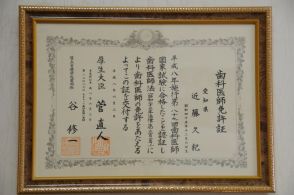 歯科医師免許証
愛知県
近藤久紀
平成八年施行第八九回歯科医師
国家試験に合格したことを認証し
歯科医師法
により歯科医師の免許をあたえる
よってこの証を交付する
厚生大臣 菅直人
谷修一